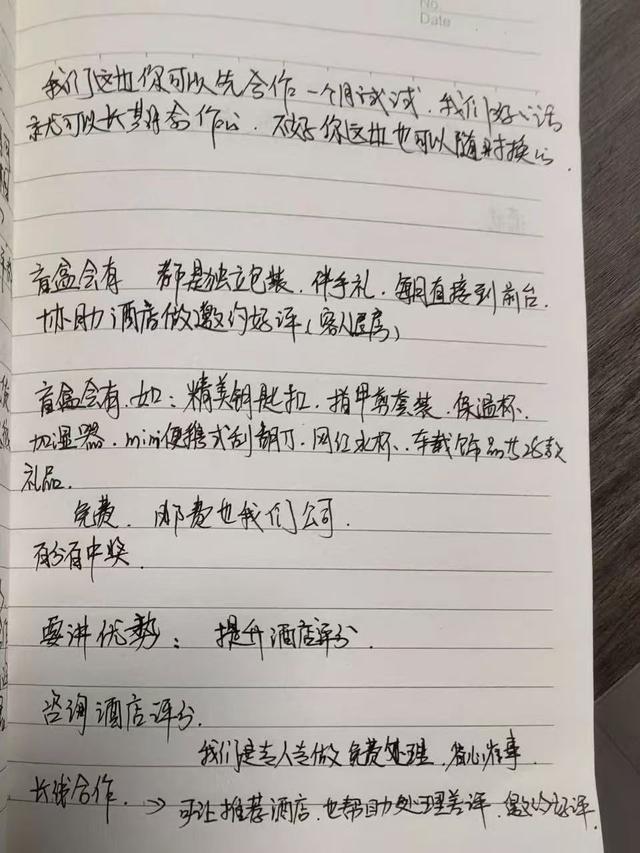 No.
Date
我们这边你可以先合作一个月试试，我们好的话
就可以长期合作的，不好你这边也可以随时换的
盲盒含有 都是独立包装，伴手礼，每月直接到前台，
协助酒店做邀约好评（客人匿房）
盲盒含有，如：精美钥匙扣，指甲剪套装，保温杯、
加湿器，mini便携式刮胡刀，网红水杯、车载饰品共28款
礼品，
免费，邮费也我们公司，
百分百中奖，
要讲优势：提升酒店评分，
咨询酒店评分，
我们是专人专做免费处理，省心省事
长线合作，→ 可让推荐酒店，也帮助处理差评，邀约好评，